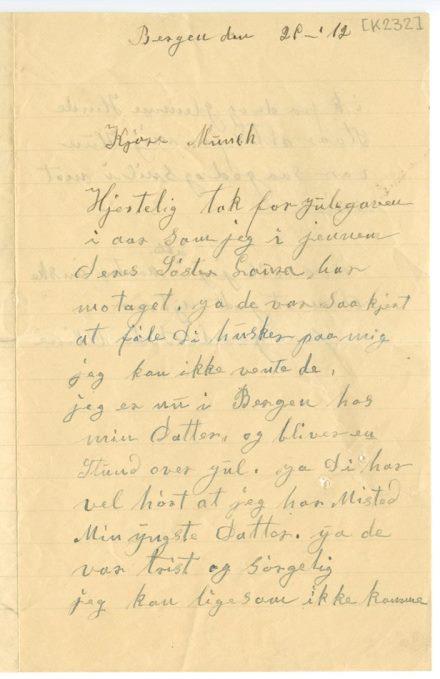 Bergen den 28 – ' 12 [K232]
Kjöre Munch
Hjertelig tak for julegaven
i aar som jeg i jennem
deres Söster Laura, har
motaget. ya de var saa kjert
at föle di husker paa mig
jeg kan ikke vente de,
jeg er nu i Bergen hos
min datter, og bliver en
stund over yul. ya di har
vel hört at jeg har Misted
Min yngste datter. ya de
var trist og sörgelig
jeg kan lige som ikke komme